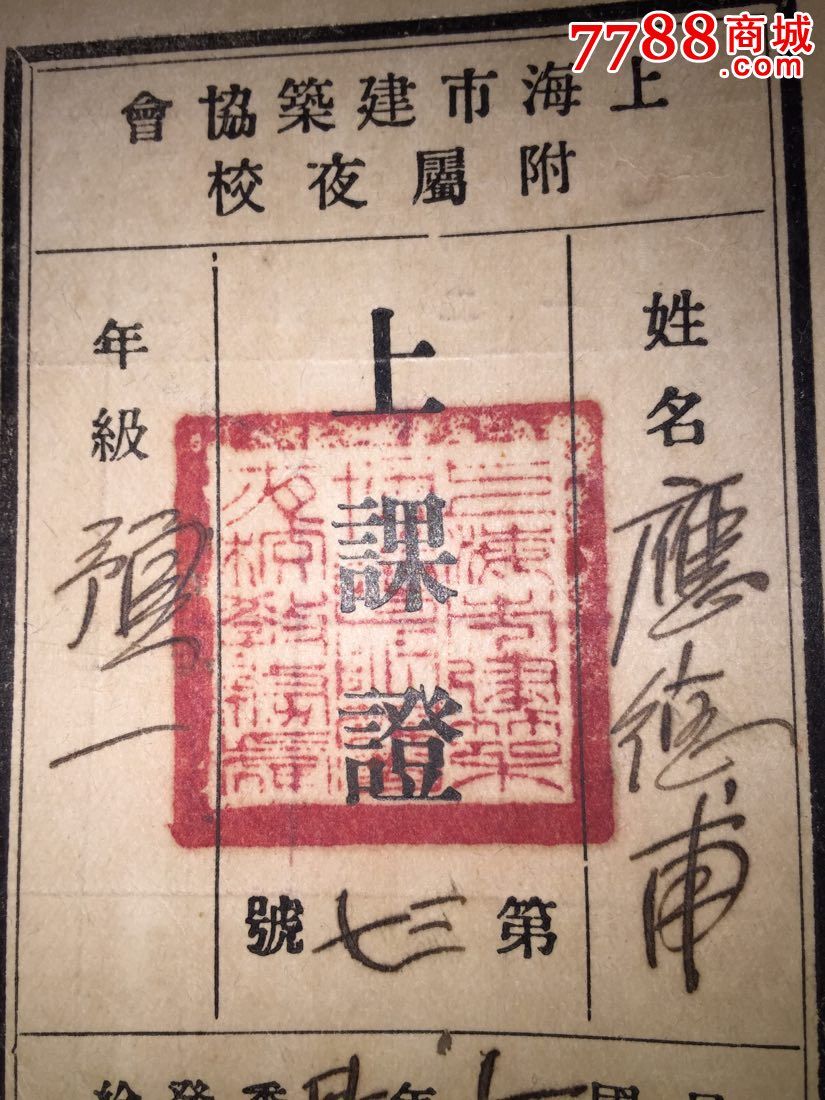 7788商城
.com
上海市建築協會
附屬夜校
姓名 應 甫
上課證
第三七號
年級 預一
國 年 季發給